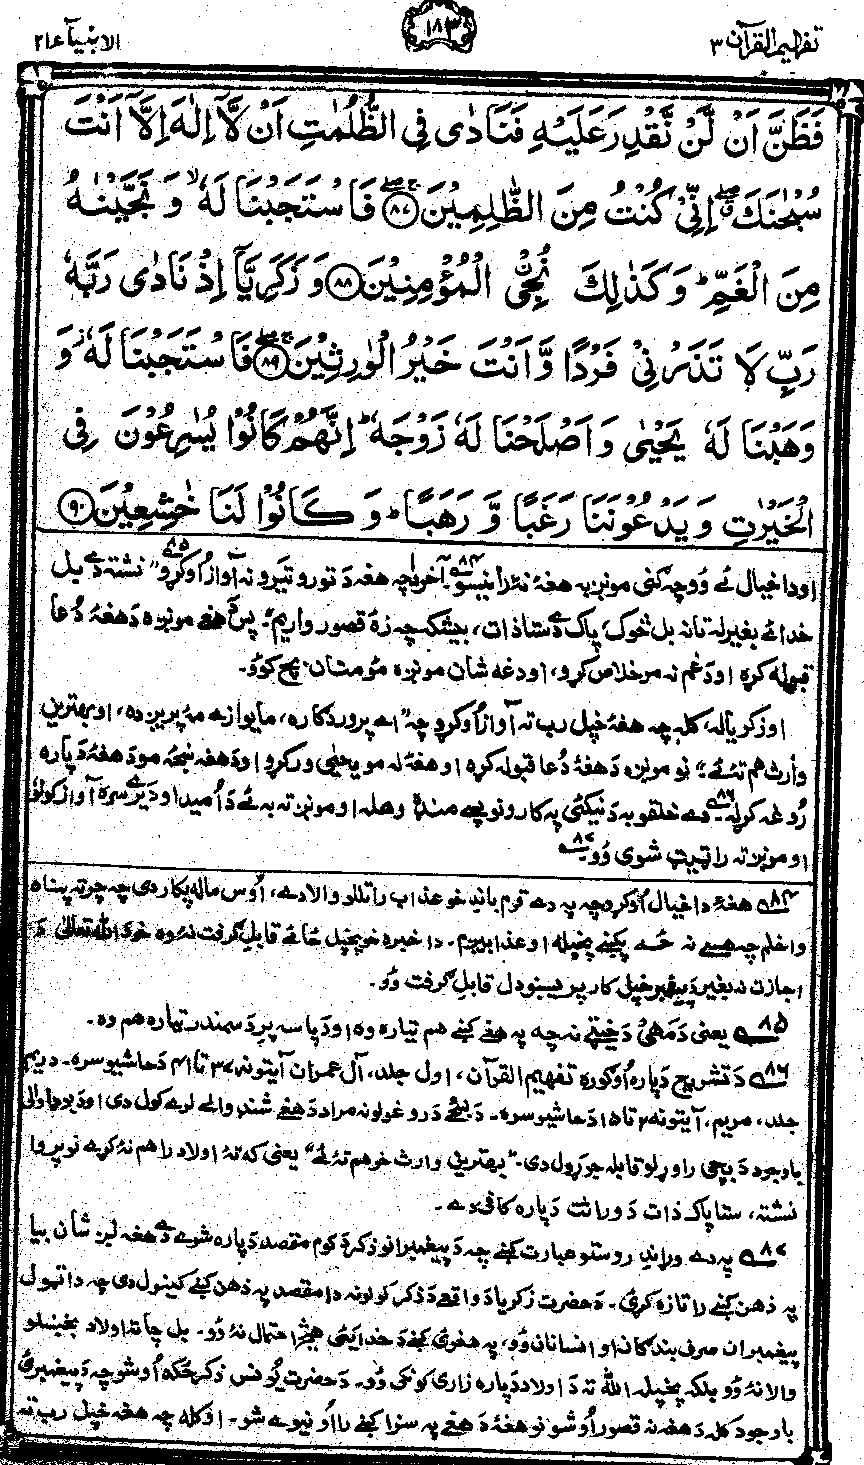 تفہیم القرآن ۳
۱۸۳
الانبیآء ۲۱
فَظَنَّ اَنْ لَّنْ نَّقْدِرَ عَلَيْهِ فَنَادٰى فِى الظُّلُمٰتِ اَنْ لَّآ اِلٰهَ اِلَّآ اَنْتَ
سُبْحٰنَكَ ۖ اِنِّىْ كُنْتُ مِنَ الظّٰلِمِيْنَ ﴿۸۷﴾ فَاسْتَجَبْنَا لَهٗ ۙ وَ نَجَّيْنٰهُ
مِنَ الْغَمِّ ؕ وَكَذٰلِكَ نُـْۨجِى الْمُؤْمِنِيْنَ ﴿۸۸﴾ وَ زَكَرِيَّآ اِذْ نَادٰى رَبَّهٗ
رَبِّ لَا تَذَرْنِىْ فَرْدًا وَّ اَنْتَ خَيْرُ الْوٰرِثِيْنَ ﴿۸۹﴾ فَاسْتَجَبْنَا لَهٗ ز وَ
وَهَبْنَا لَهٗ يَحْيٰى وَ اَصْلَحْنَا لَهٗ زَوْجَهٗ ؕ اِنَّهُمْ كَانُوْا يُسٰرِعُوْنَ فِى
الْخَيْرٰتِ وَ يَدْعُوْنَنَا رَغَبًا وَّ رَهَبًا ؕ وَ كَانُوْا لَنَا خٰشِعِيْنَ ﴿۹۰﴾
او دا خیال ئے وُو چہ کنی مونږ بہ هغۂ نۂ رانیسو ۸۴ آخر چہ هغہ دَ تورو تیرو نہ آواز اُوکړو ۸۵ "نشتہ دے بل
خدائے بغیر لہ تا نہ بل څوک، پاک دے ستا ذات، بیشکہ چہ زۂ قصور وار یم" پس هغے مونږہ دَ هغۂ دُعا
قبولہ کړہ او دَ غم نہ مو خلاص کړو، او دغہ شان مونږہ مؤمنان بچ کوُو۔
او زکریا لہ، کلہ چہ هغۂ خپل رب تہ آواز اُوکړو چہ "اے پروردګارہ، ما یوازے مۂ پریږدہ، او بهترین
وارث هم تۂ ئے" نو مونږہ دَ هغۂ دُعا قبولہ کړہ او هغۂ لہ مو یحییٰ ورکړو او دَ هغہ ښځہ مو دَ هغۂ دَپارہ
رُوغہ کړلہ ۸۶ دے خلقو بہ دَ نیکئی پہ کارونو کښے منډہ وهلہ او مونږ تہ بہ ئے دَ اُمید او دَ یرے سرہ آواز کولو
او مونږ تہ را ټیټ شوی وُو ۸۷
۸۴ هغۂ دا خیال اُوکړو چہ پہ دے قوم باندِ خو عذاب راتلو والا دے، اُوس مالہ پکار دی چہ چرتہ پناہ
واخلم چہ هسے نہ پکښے پخپلہ ا و عذابیږم۔ دا خبرہ خو پخپل ځائے قابلِ ګرفت نۂ وہ خو دَ اللہ تعالیٰ دَ
اجازت نہ بغیر دَ پیغمبر خپل کار پریښودل قابلِ ګرفت وُو۔
۸۵ یعنی دَ مَهی دَ خیټے نہ چہ پہ هغے کښے هم تیارہ وہ او دَپاسہ پرِ دَ سمندر تیارہ هم وہ۔
۸۶ دَ تشریح دَپارہ اُوګورہ تفہیم القرآن، اول جلد، آلِ عمران آیتونہ ۳۷ تا ۴۱ دَ حاشیو سرہ۔ دریم
جلد، مریم، آیتونہ ۲ تا ۱۵ دَ حاشیو سرہ۔ دَ ښځے دَ روغولو نہ مراد دَ هغے شنډ والے لرے کول دی او دَ بوډاوالی
باوجود دَ بچی راوړلو قابلہ جوړول دی۔ "بهترین وارث خو هم تۂ ئے" یعنی کہ تۂ اولاد را هم نۂ کړے نو پروا
نشتہ، ستا پاک ذات دَ وراثت دَپارہ کافی دے۔
۸۷ پہ دے وړاندے روستو عبارت کښے چہ دَ پیغمبرانو ذکر دَ کوم مقصد دَپارہ شوے دے هغہ لږ شان بیا
پہ ذهن کښے را تازہ کړئ۔ دَ حضرت زکریا دَ واقعے دَ ذکر کولو نہ دا مقصد پہ ذهن کښے کینول دی چہ دا ټول
پیغمبران صرف بندګان او انسانان وُو، پہ هغوئی کښے دَ خدایئی هیڅ احتمال نۂ وُو۔ بل چا تہ اولاد بخښلو
والا نۂ وُو بلکہ پخپلہ اللہ تہ دَ اولاد دَپارہ زاری کوونکی وُو۔ دَ حضرت یُونس ذکر ځکہ اُوشو چہ دَ پیغمبرئ
باوجود کلہ دَ هغہ نہ قصور اُوشو نو هغہ دَ هغے پہ سزا کښے را اُونیوے شو۔ او کلہ چہ هغہ خپل رب تہ